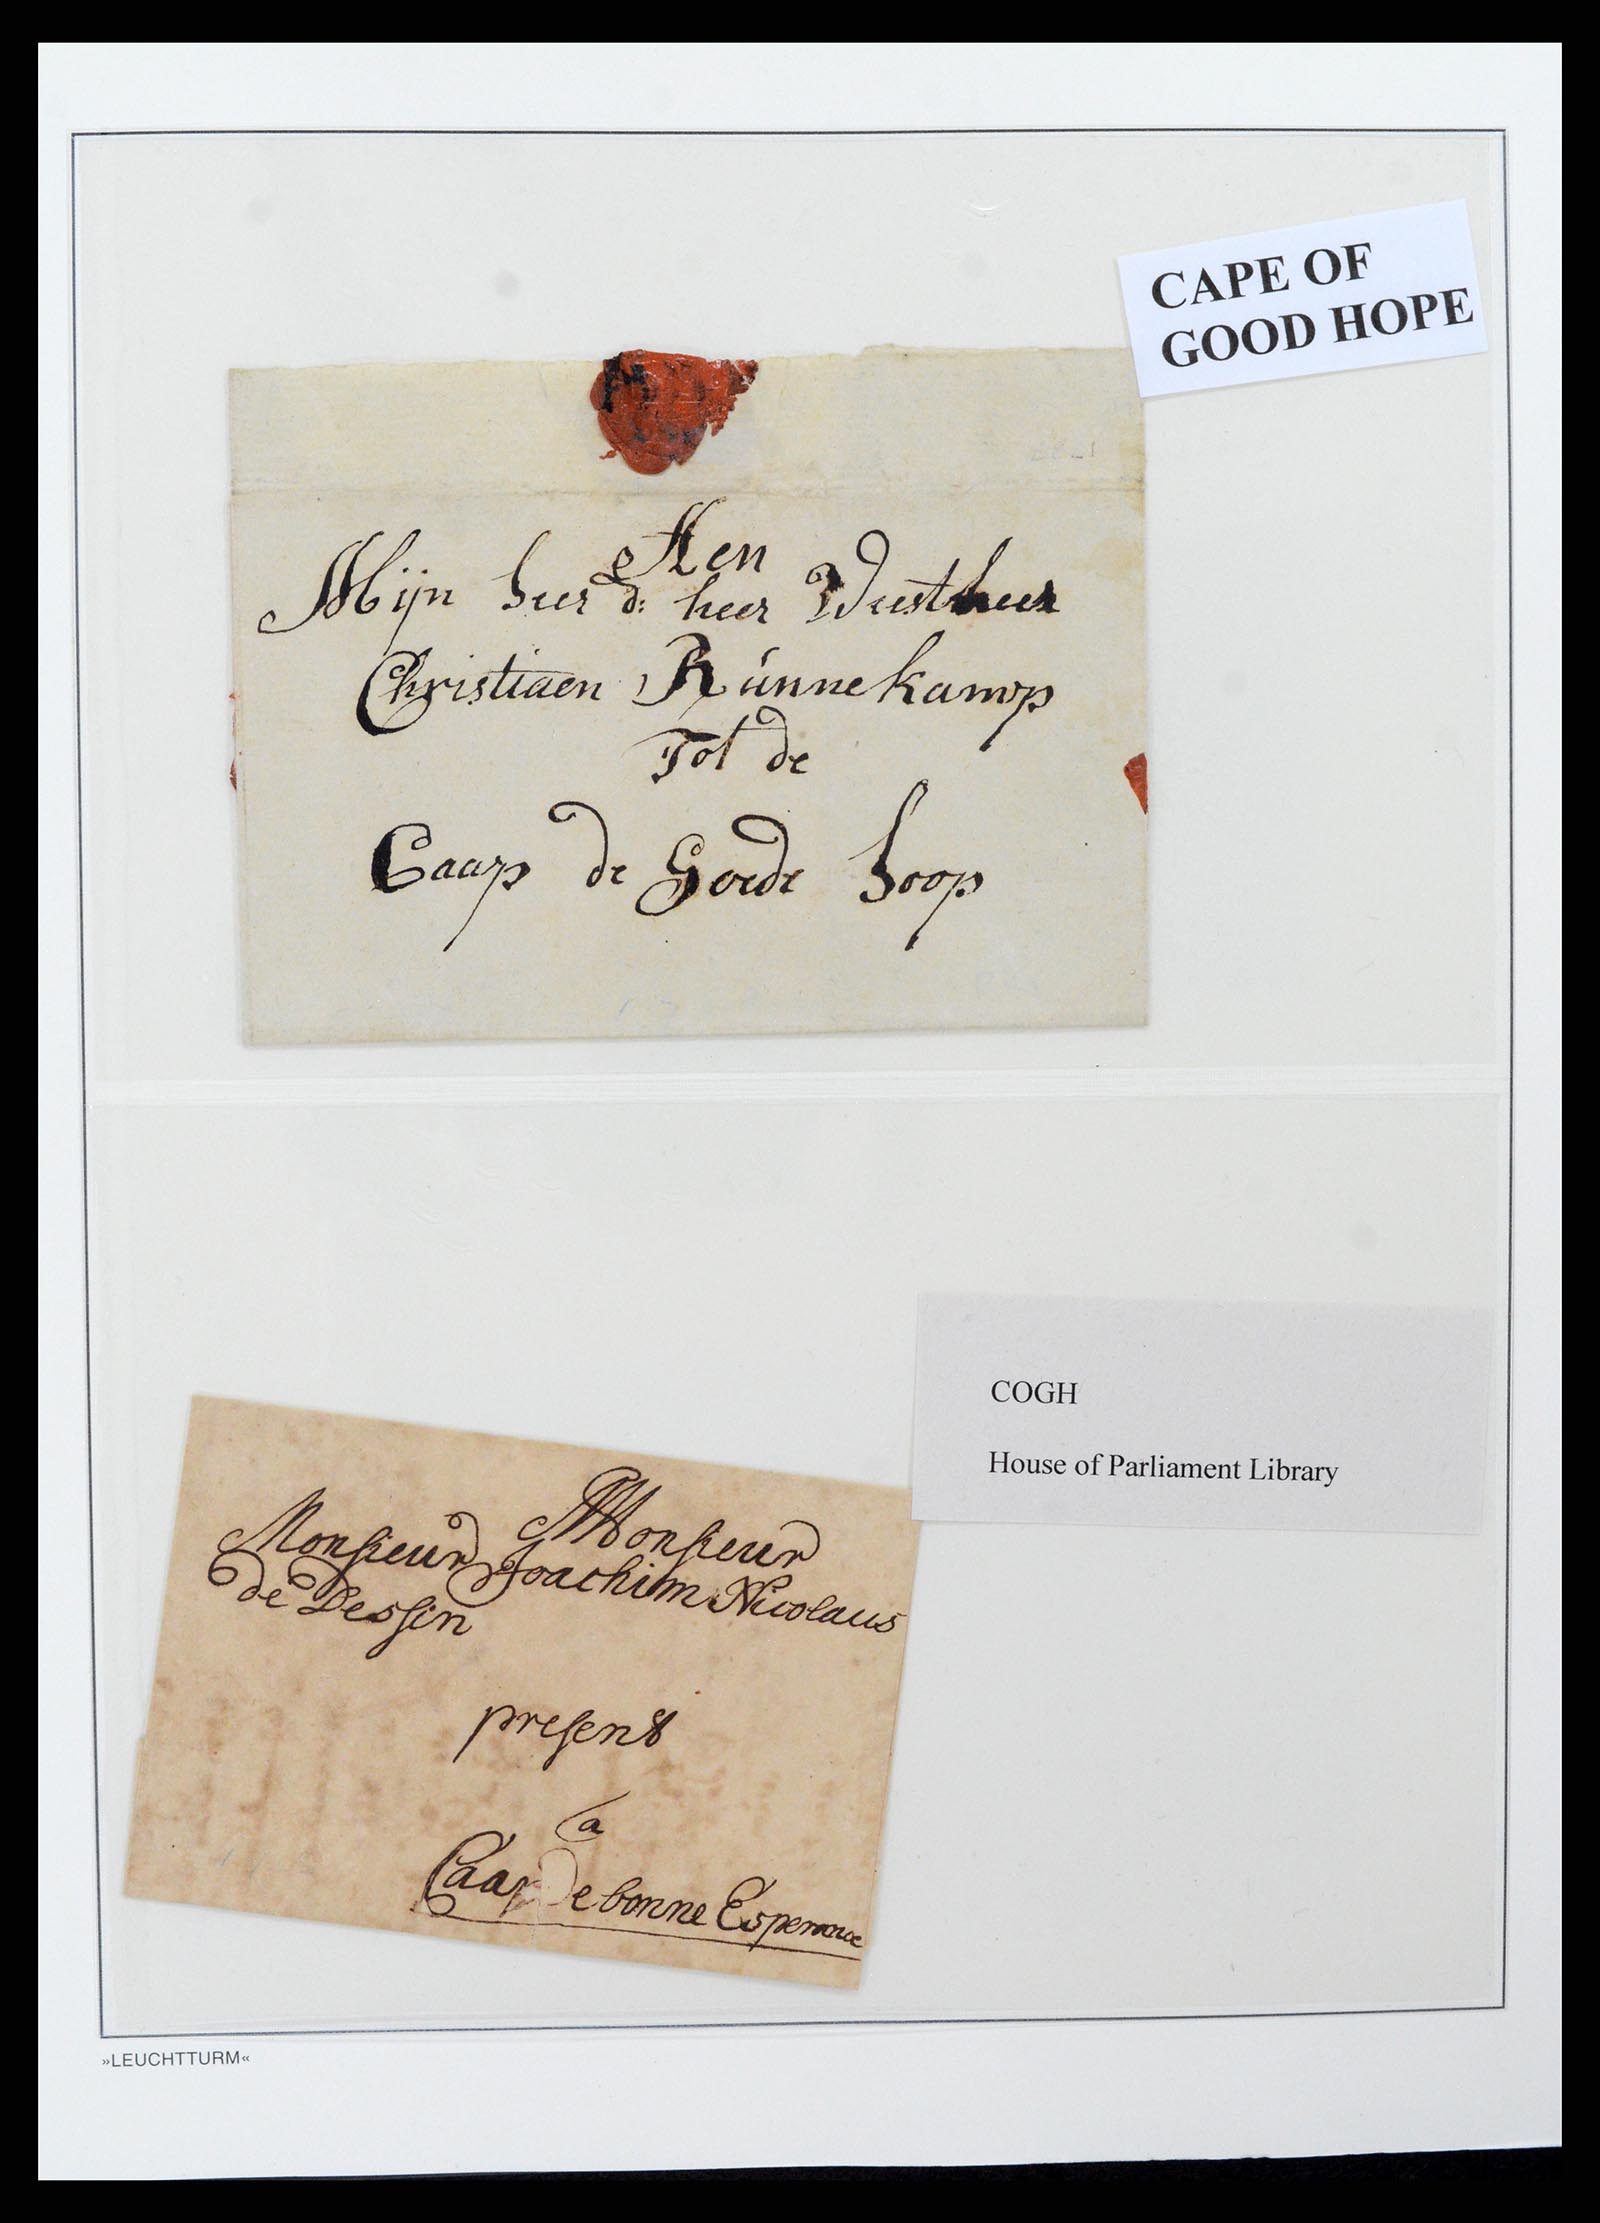 CAPE OF
GOOD HOPE
Aen
Mijn heer d: heer
Christiaen Rúnnekamp
Tot de
Caap de Goede hoop
COGH
House of Parliament Library
Monsieur
Monsieur Joachim Nicolaus
de Dessin
present
a
Caap De bonne Esperance
»LEUCHTTURM«